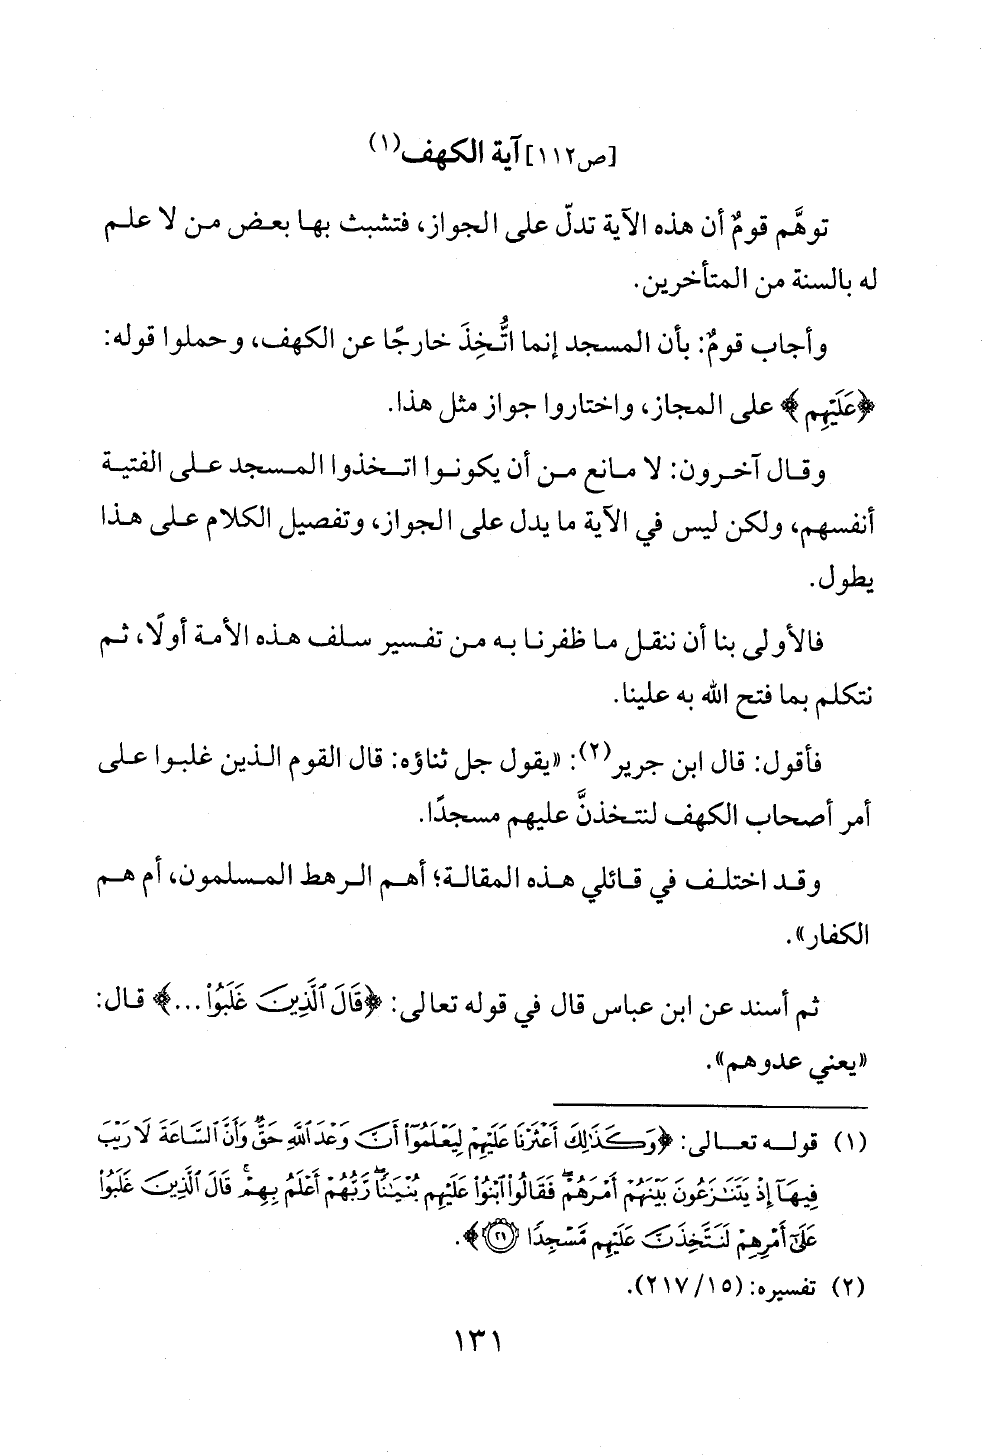 [ص١١٢] آية الكهف(١)
توهَّم قومٌ أن هذه الآية تدلّ على الجواز، فتشبث بها بعض من لا علم
له بالسنة من المتأخرين.
وأجاب قومٌ: بأن المسجد إنما اتُّخِذَ خارجًا عن الكهف، وحملوا قوله:
﴿عَلَيْهِم﴾ على المجاز، واختاروا جواز مثل هذا.
وقال آخرون: لا مانع من أن يكونوا اتخذوا المسجد على الفتية
أنفسهم، ولكن ليس في الآية ما يدل على الجواز، وتفصيل الكلام على هذا
يطول.
فالأولى بنا أن ننقل ما ظفرنا به من تفسير سلف هذه الأمة أولًا، ثم
نتكلم بما فتح الله به علينا.
فأقول: قال ابن جرير(٢): «يقول جل ثناؤه: قال القوم الذين غلبوا على
أمر أصحاب الكهف لنتخذنَّ عليهم مسجدًا.
وقد اختلف في قائلي هذه المقالة؛ أهم الرهط المسلمون، أم هم
الكفار».
ثم أسند عن ابن عباس قال في قوله تعالى: ﴿قَالَ ٱلَّذِينَ غَلَبُوا۟ ...﴾ قال:
«يعني عدوهم».
(١) قوله تعالى: ﴿وَكَذَٰلِكَ أَعْثَرْنَا عَلَيْهِمْ لِيَعْلَمُوٓا۟ أَنَّ وَعْدَ ٱللَّهِ حَقٌّ وَأَنَّ ٱلسَّاعَةَ لَا رَيْبَ
فِيهَآ إِذْ يَتَنَٰزَعُونَ بَيْنَهُمْ أَمْرَهُمْ ۖ فَقَالُوا۟ ٱبْنُوا۟ عَلَيْهِم بُنْيَٰنًا ۖ رَّبُّهُمْ أَعْلَمُ بِهِمْ ۚ قَالَ ٱلَّذِينَ غَلَبُوا۟
عَلَىٰٓ أَمْرِهِمْ لَنَتَّخِذَنَّ عَلَيْهِم مَّسْجِدًا ۝٢١﴾.
(٢) تفسيره: (١٥/ ٢١٧).
١٣١